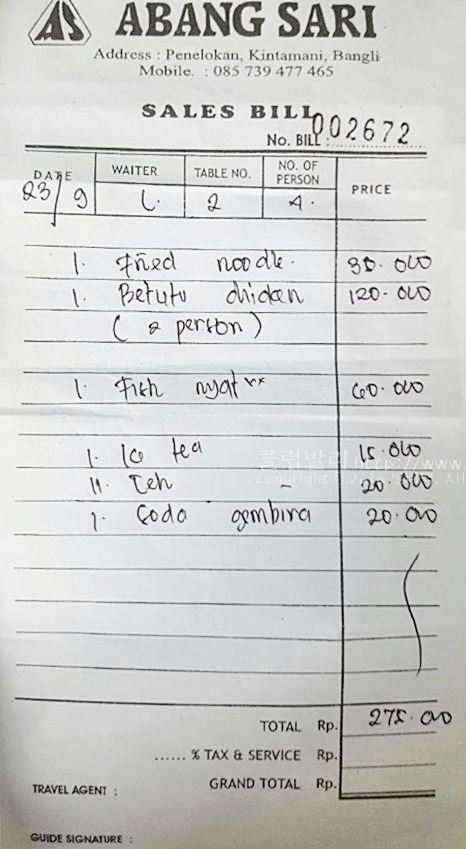 AS ABANG SARI
Address : Penelokan, Kintamani, Bangli
Mobile. : 085 739 477 465
SALES BILL
No. BILL : 002672
DATE WAITER TABLE NO. NO. OF PERSON PRICE
23/9 L. 2 4.
1. Fried noodle. 30.000
1. Betutu chicken 120.000
( 2 person )
1. Fish nyat 60.000
1. Ice tea 15.000
11. Teh - 20.000
1. Soda gembira 20.000
클럽발리 http://www.
Copyright
TOTAL Rp. 275.000
...... % TAX & SERVICE Rp.
TRAVEL AGENT : GRAND TOTAL Rp.
GUIDE SIGNATURE :